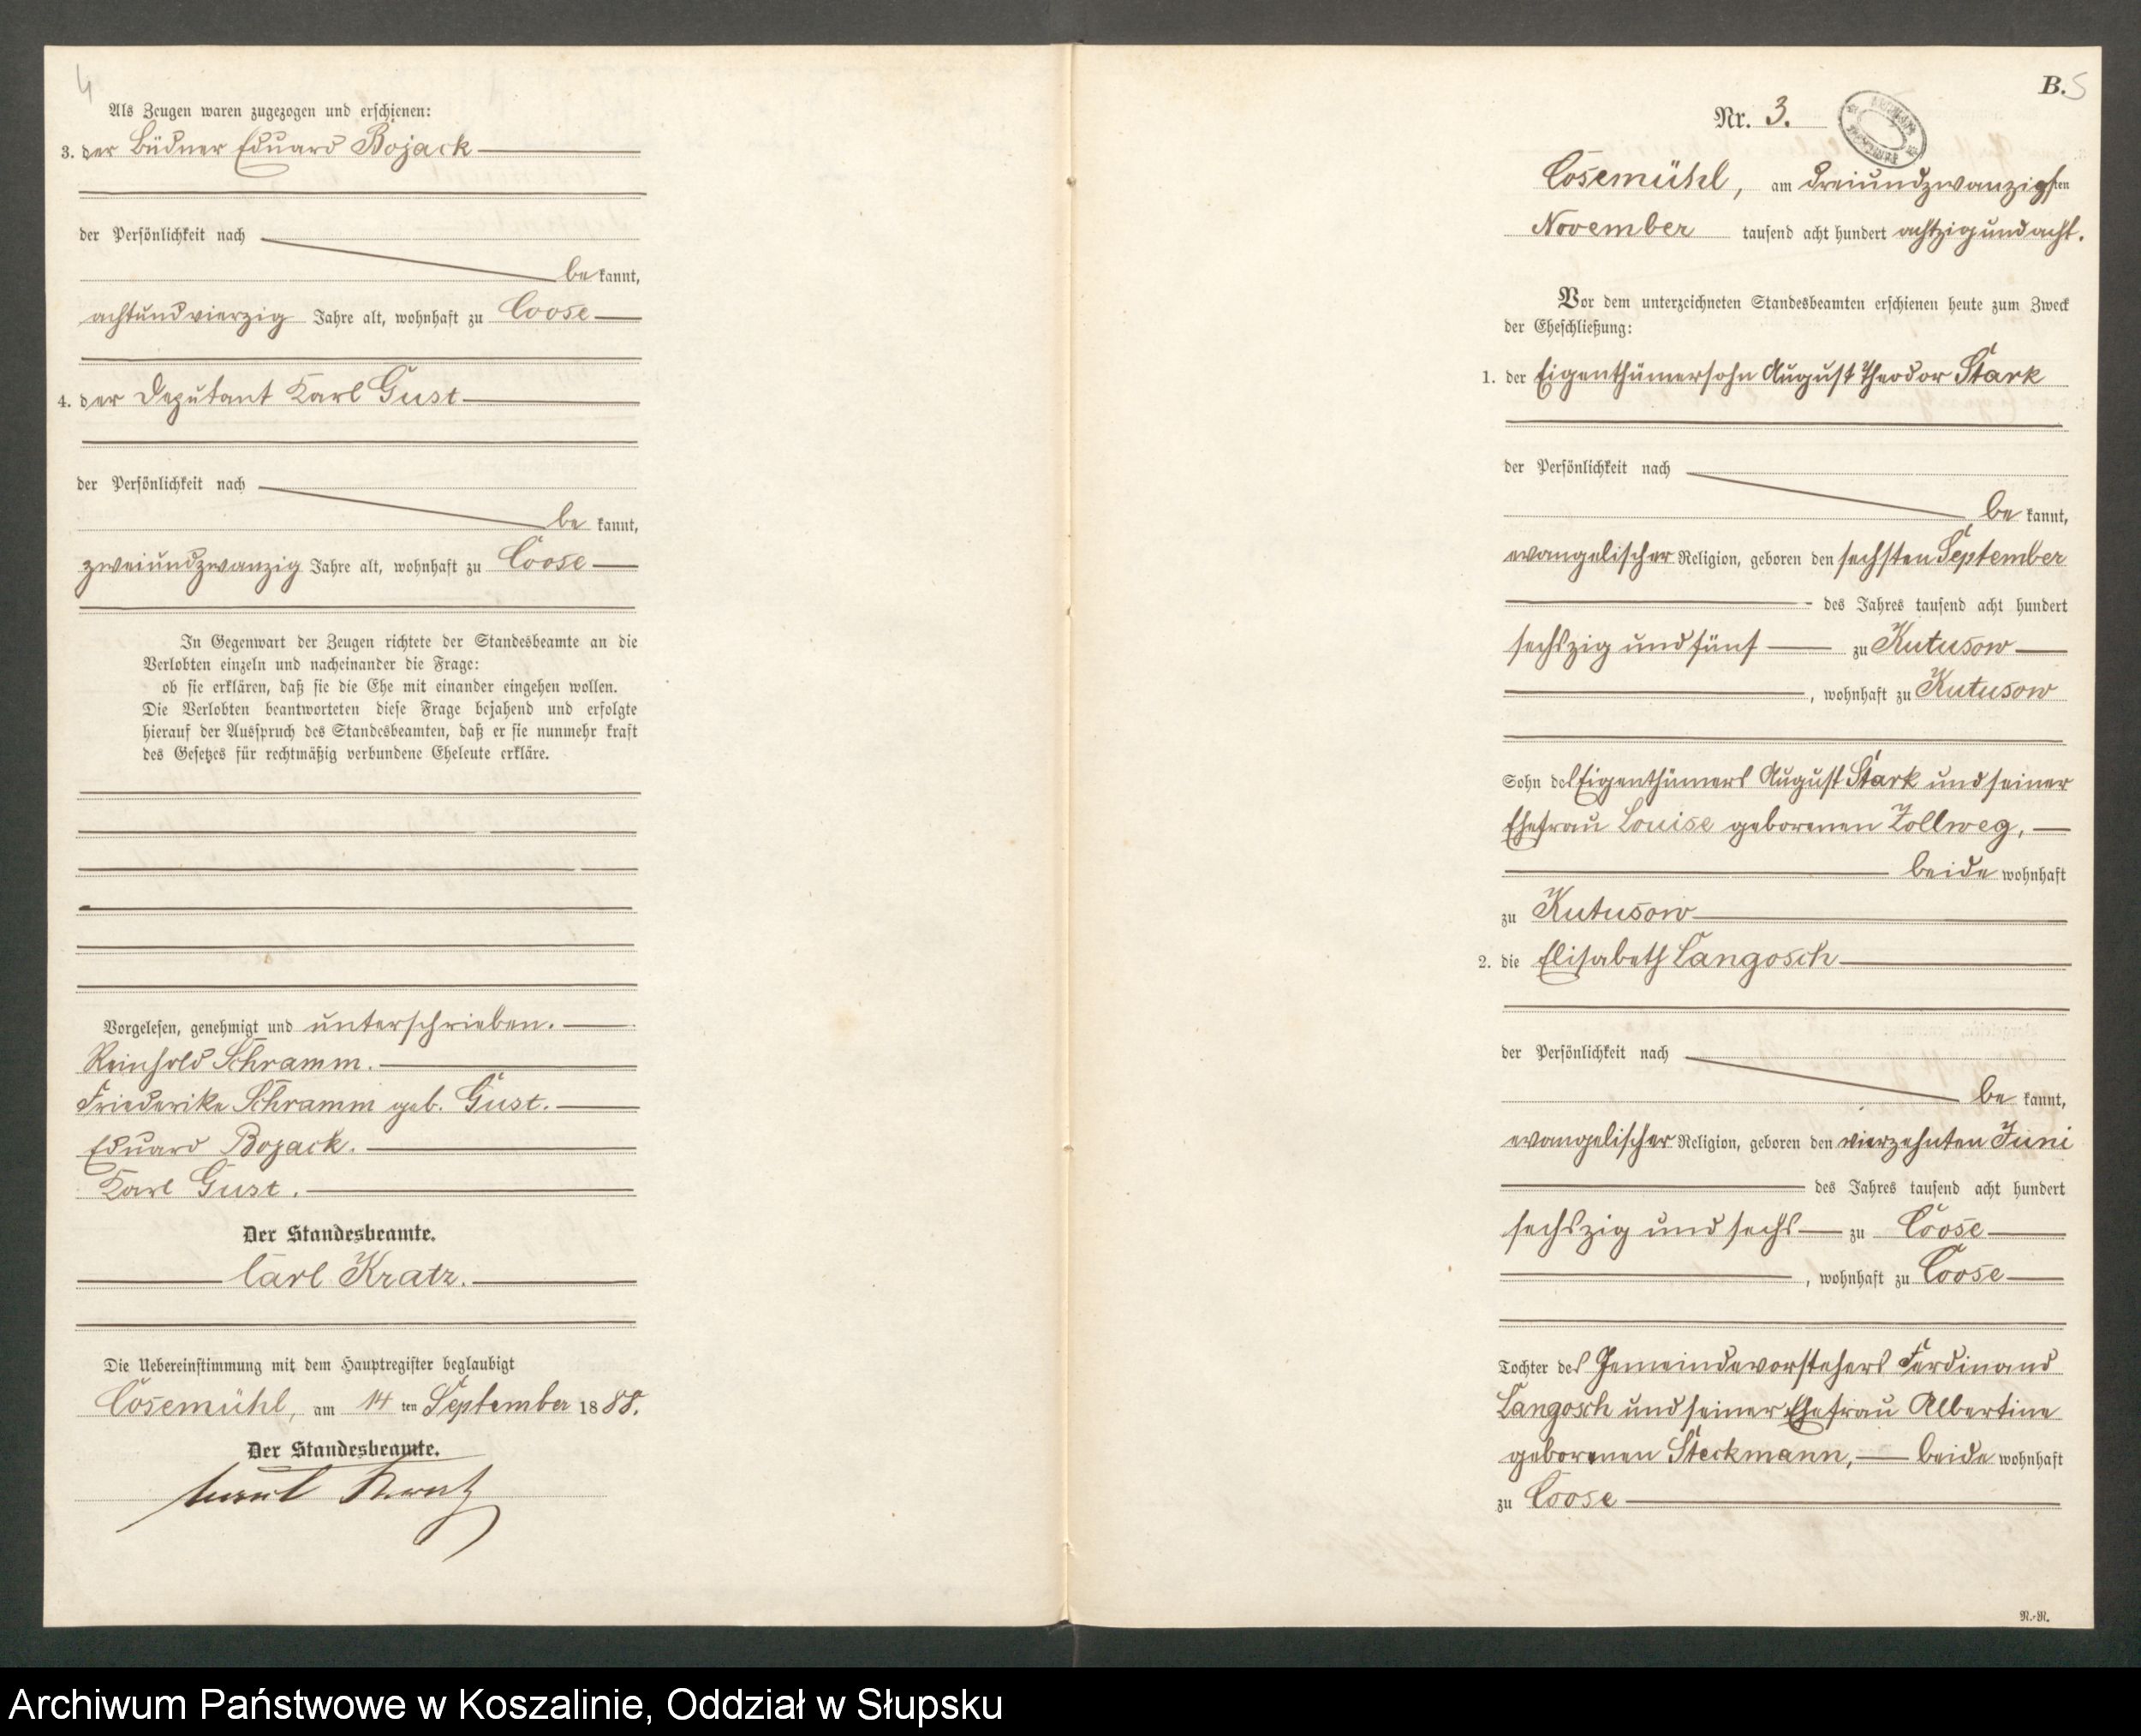 4
Als Zeugen waren zugezogen und erschienen:
3. der Büdner Eduard Bojack
der Persönlichkeit nach
be kannt,
achtundvierzig Jahre alt, wohnhaft zu Coose
4. der Deputant Karl Gust
der Persönlichkeit nach
be kannt,
zweiundzwanzig Jahre alt, wohnhaft zu Coose
In Gegenwart der Zeugen richtete der Standesbeamte an die
Verlobten einzeln und nacheinander die Frage:
ob sie erklären, daß sie die Ehe mit einander eingehen wollen.
Die Verlobten beantworteten diese Frage bejahend und erfolgte
hierauf der Ausspruch des Standesbeamten, daß er sie nunmehr kraft
des Gesetzes für rechtmäßig verbundene Eheleute erkläre.
Vorgelesen, genehmigt und unterschrieben.
Reinhold Schramm.
Friederike Schramm geb. Gust.
Eduard Bojack.
Karl Gust.
Der Standesbeamte.
Carl Kratz.
Die Uebereinstimmung mit dem Hauptregister beglaubigt
Cosemühl, am 14 ten September 1888.
Der Standesbeamte.
Carl Kratz
B. 5
Nr. 3.
Cosemühl, am dreiundzwanzigsten
November tausend acht hundert achtzig und acht.
Vor dem unterzeichneten Standesbeamten erschienen heute zum Zweck
der Eheschließung:
1. der Eigenthümersohn August Theodor Stark
der Persönlichkeit nach
be kannt,
evangelischer Religion, geboren den sechsten September
des Jahres tausend acht hundert
sechszig und fünf zu Kutusow
, wohnhaft zu Kutusow
Sohn des Eigenthümers August Stark und seiner
Ehefrau Louise geborenen Zollweg,
beide wohnhaft
zu Kutusow
2. die Elisabeth Langosch
der Persönlichkeit nach
be kannt,
evangelischer Religion, geboren den vierzehnten Juni
des Jahres tausend acht hundert
sechszig und sechs zu Coose
, wohnhaft zu Coose
Tochter des Gemeindevorstehers Ferdinand
Langosch und seiner Ehefrau Albertine
geborenen Steckmann, beide wohnhaft
zu Coose
N.-N.
Archiwum Państwowe w Koszalinie, Oddział w Słupsku